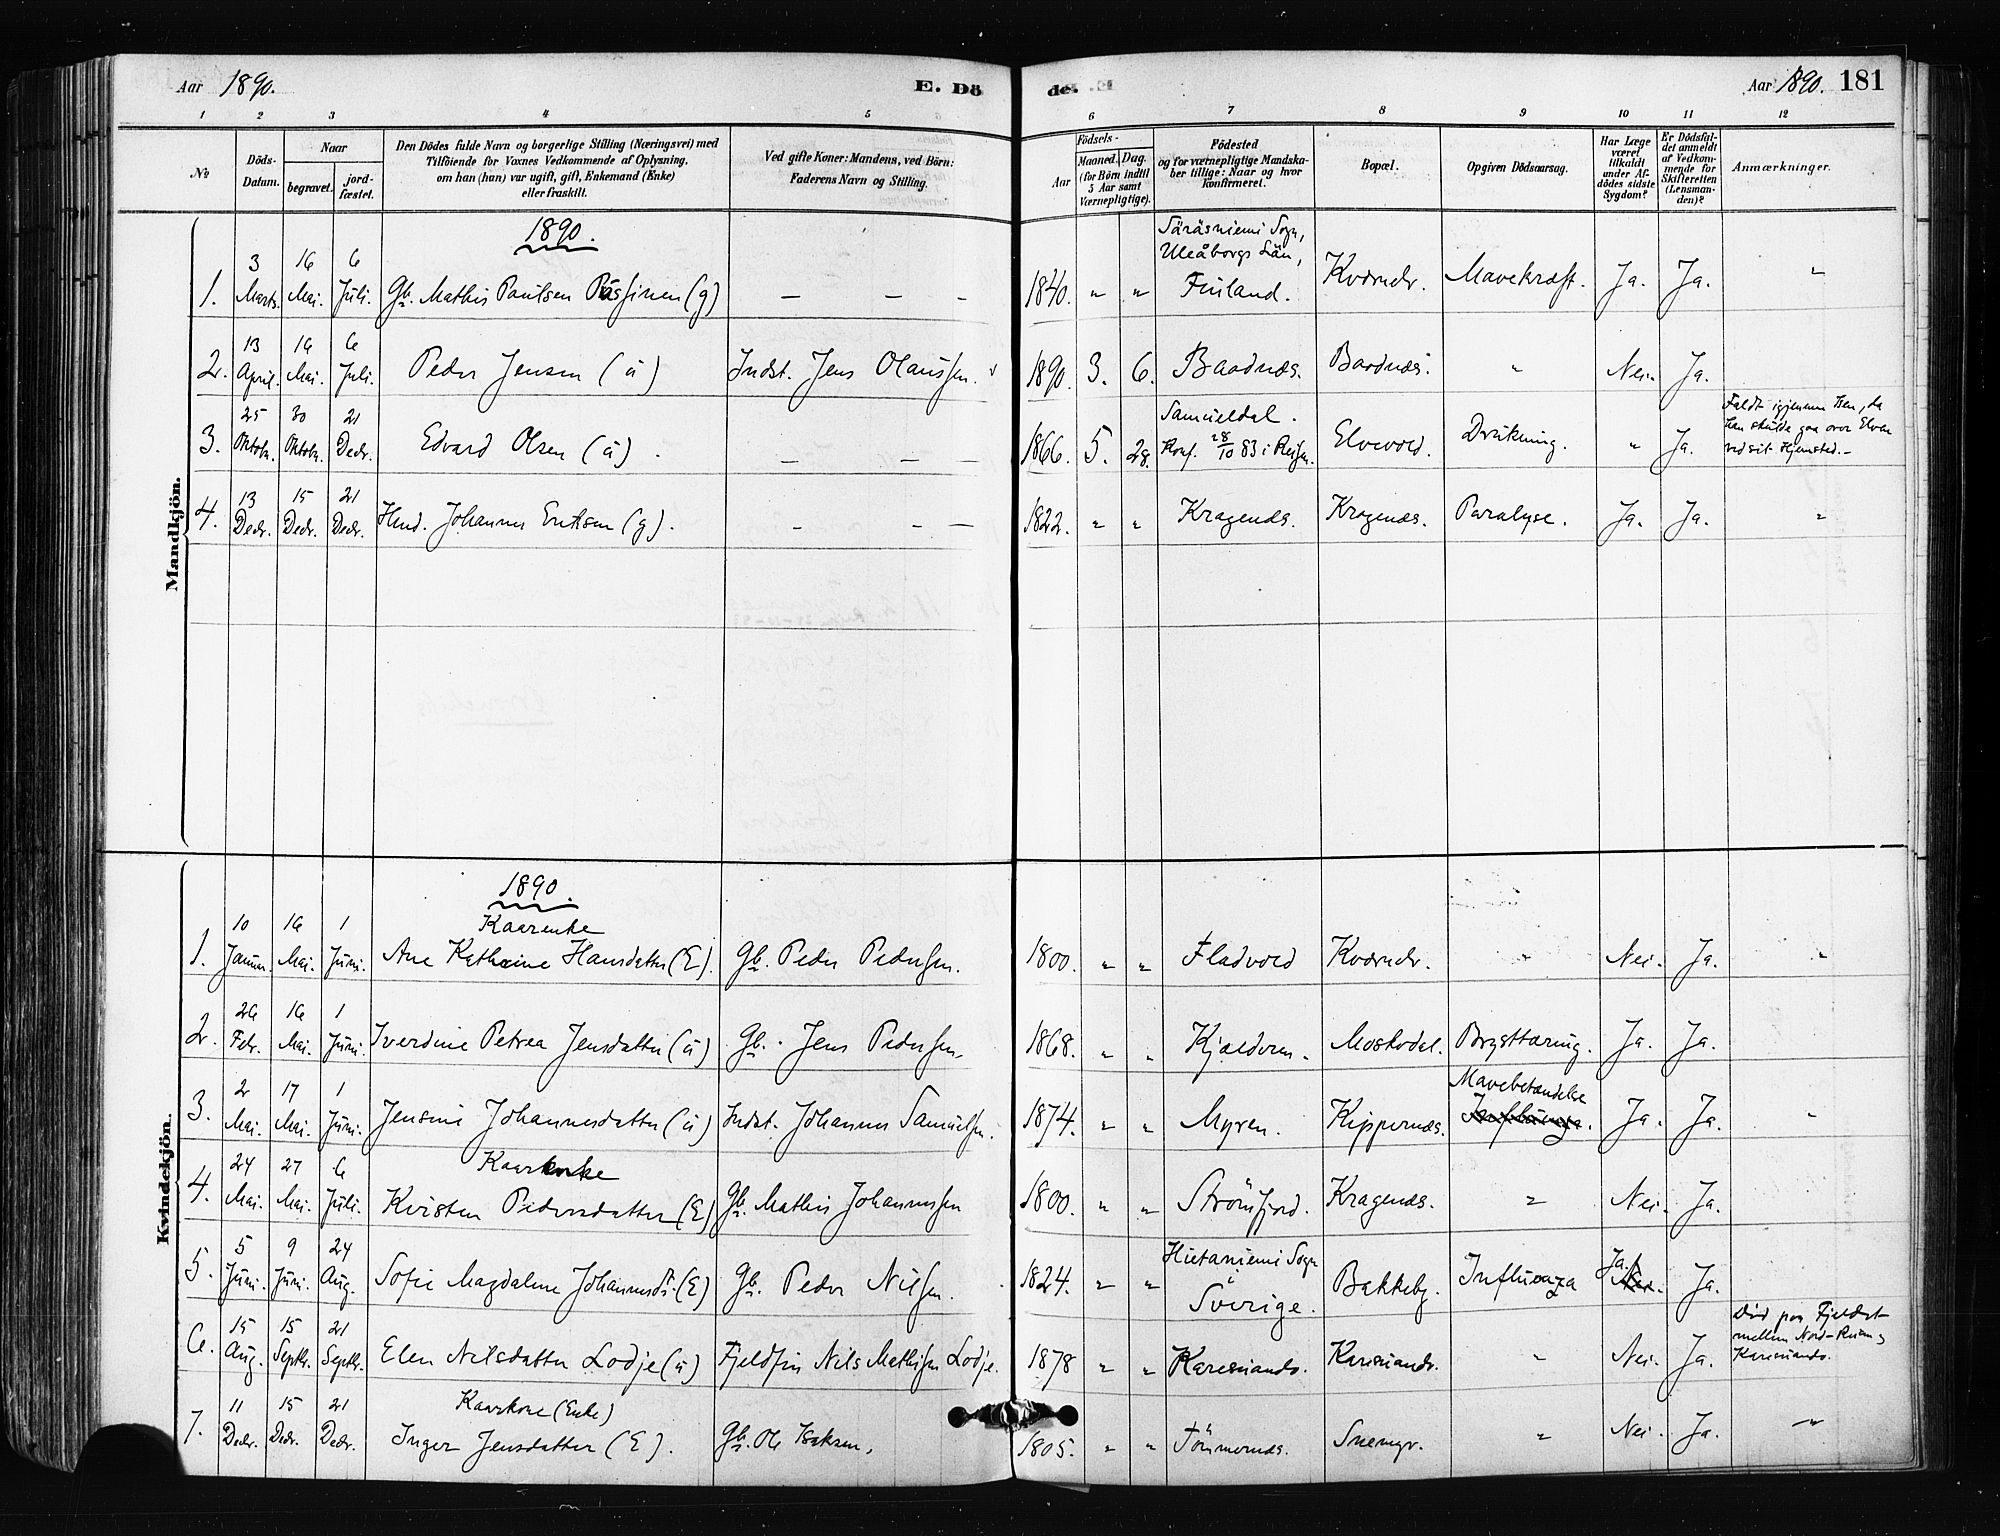 Aar 1890.
E. Dö
de.
Aar 1890. 181
1 2 3 4 5 6 7 8 9 10 11 12
No
Döds-
Datum.
Naar
begravet.
jord-
fæstet.
Den Dödes fulde Navn og borgerlige Stilling (Næringsvei) med
Tilföiende for Voxnes Vedkommende af Oplysning,
om han (hun) var ugift, gift, Enkemand (Enke)
eller fraskilt.
Ved gifte Koner: Mandens, ved Börn:
Faderens Navn og Stilling.
Födsels-
Aar
Maaned. Dag.
(for Börn indtil
5 Aar samt
Værnepligtige).
Födested
og for værnepligtige Mandska-
ber tillige: Naar og hvor
konfirmeret.
Bopæl.
Opgiven Dödsaarsag.
Har Læge
været
tilkaldt
under Af-
dödes sidste
Sygdom?
Er Dödsfal-
det anmeldt
af Vedkom-
mende for
Skifteretten
(Lensman-
den)?
Anmærkninger.
Mandkjön.
1890.
1. 3 Marts. 16 Mai. 6 Juli. Gb. Mathis Paulsen (g) — — — 1840. " " Säräsniemi Sogn, Uleåborgs Län, Finland. Kvænelv. Mavekræft. Ja. Ja. "
2. 13 April. 16 Mai. 6 Juli. Peder Jensen (u) Indst. Jens Olaussen. 1890. 3. 6. Baadnæs. Baadnæs. " Nei. Ja.
3. 25 Oktobr. 30 Oktobr. 21 Decbr. Edvard Olsen (u). — — — 1866. 5. 28. Samueldal. Konf. 28/10 83 i Reisen. Elvevold. Drukning. " Ja. Faldt igjennem Isen, da
han skulde gaa over Elven
ved sit Hjemsted.
4. 13 Decbr. 15 Decbr. 21 Decbr. Johannes Eriksen (g). — — — 1822. " " Kragenæs. Kragenæs. Paralyse. Ja. Ja. "
Kvindekjön.
1890.
1. 10 Januar. 16 Mai. 1 Juni. Kaarenke Ane Kathrine Hansdatter (E). Gb. Peder Pedersen. 1800. " " Fladvold Kvænelv. " Nei. Ja. "
2. 26 Febr. 16 Mai. 1 Juni. Iverdine Petrea Jensdatter (u) Gb. Jens Pedersen. 1868. " " Kjælderen. Moskodal. Brysttæring. Ja. Ja.
3. 2 Mai. 17 Mai. 1 Juni. Jensine Johannesdatter (u) Indst. Johannes Samuelsen. 1874. " " Myren. Kippernæs. Mavebetændelse Influenza. Ja. Ja. "
4. 24 Mai. 27 Mai. 6 Juli. Kaarenke Kirsten Pedersdatter (E) Gb. Mathis Johannessen 1800. " " Strömfjord. Kragenæs. " Nei. Ja.
5. 5 Juni. 9 Juni. 24 Aug. Sofie Magdalene Johannesdtr. (E) Gb. Peder Nilsen. 1824. " " Hietaniemi Sogn i Sverige. Bakkeby. Influenza Ja. Nei. Ja.
6. 15 Aug. 15 Septbr. 21 Septbr. Elen Nilsdatter Lodje (u) Fjeldfin Nils Mathisen Lodje. 1878 " " Karesuando. Karesuando. " Nei. Ja. Död paa Fjeldet
mellem Nord-Reisen og
Karesuando.
7. 11 Decbr. 15 Decbr. 21 Decbr. Kaarkone (Enke) Inger Jensdatter (E). Gb. Ole Isaksen. 1805. " " Tömmernæs. Snemyr. " Nei. Ja. "